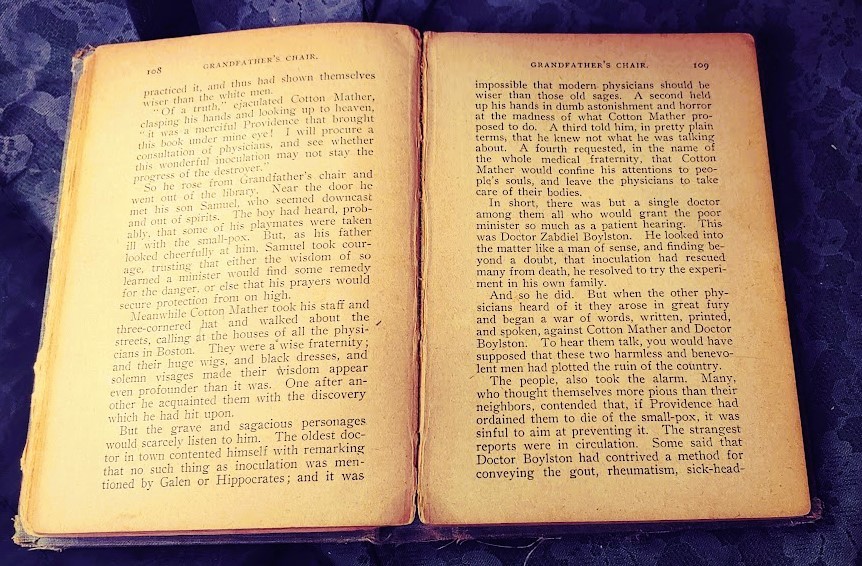 108 GRANDFATHER'S CHAIR.
practiced it, and thus had shown themselves
wiser than the white men.
"Of a truth," ejaculated Cotton Mather,
clasping his hands and looking up to heaven,
"it was a merciful Providence that brought
this book under mine eye! I will procure a
consultation of physicians, and see whether
this wonderful inoculation may not stay the
progress of the destroyer."
So he rose from Grandfather's chair and
went out of the library. Near the door he
met his son Samuel, who seemed downcast
and out of spirits. The boy had heard, prob-
ably, that some of his playmates were taken
ill with the small-pox. But, as his father
looked cheerfully at him, Samuel took cour-
age, trusting that either the wisdom of so
learned a minister would find some remedy
for the danger, or else that his prayers would
secure protection from on high.
Meanwhile Cotton Mather took his staff and
three-cornered hat and walked about the
streets, calling at the houses of all the physi-
cians in Boston. They were a wise fraternity;
and their huge wigs, and black dresses, and
solemn visages made their wisdom appear
even profounder than it was. One after an-
other he acquainted them with the discovery
which he had hit upon.
But the grave and sagacious personages
would scarcely listen to him. The oldest doc-
tor in town contented himself with remarking
that no such thing as inoculation was men-
tioned by Galen or Hippocrates; and it was
GRANDFATHER'S CHAIR. 109
impossible that modern physicians should be
wiser than those old sages. A second held
up his hands in dumb astonishment and horror
at the madness of what Cotton Mather pro-
posed to do. A third told him, in pretty plain
terms, that he knew not what he was talking
about. A fourth requested, in the name of
the whole medical fraternity, that Cotton
Mather would confine his attentions to peo-
ple's souls, and leave the physicians to take
care of their bodies.
In short, there was but a single doctor
among them all who would grant the poor
minister so much as a patient hearing. This
was Doctor Zabdiel Boylston. He looked into
the matter like a man of sense, and finding be-
yond a doubt, that inoculation had rescued
many from death, he resolved to try the experi-
ment in his own family.
And so he did. But when the other phy-
sicians heard of it they arose in great fury
and began a war of words, written, printed,
and spoken, against Cotton Mather and Doctor
Boylston. To hear them talk, you would have
supposed that these two harmless and benevo-
lent men had plotted the ruin of the country.
The people, also took the alarm. Many,
who thought themselves more pious than their
neighbors, contended that, if Providence had
ordained them to die of the small-pox, it was
sinful to aim at preventing it. The strangest
reports were in circulation. Some said that
Doctor Boylston had contrived a method for
conveying the gout, rheumatism, sick-head-